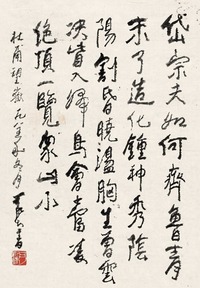 岱宗夫如何齊魯青
未了造化鍾神秀陰
陽割昏曉盪胸生曾雲
決眥入歸鳥會當凌
絕頂一覽眾山小
杜甫望嶽